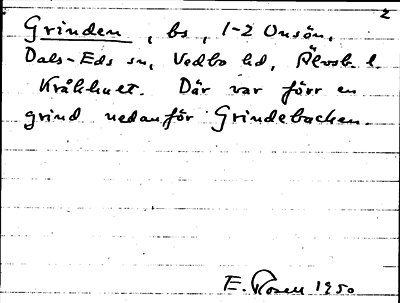 2
Grinden, bs, 1-2 Onsön,
Dals-Eds sn, Vedbo hd, Älvsb. l.
Kråkhult. Där var förr en
grind nedanför Grindebacken.
E. Rosell 1950